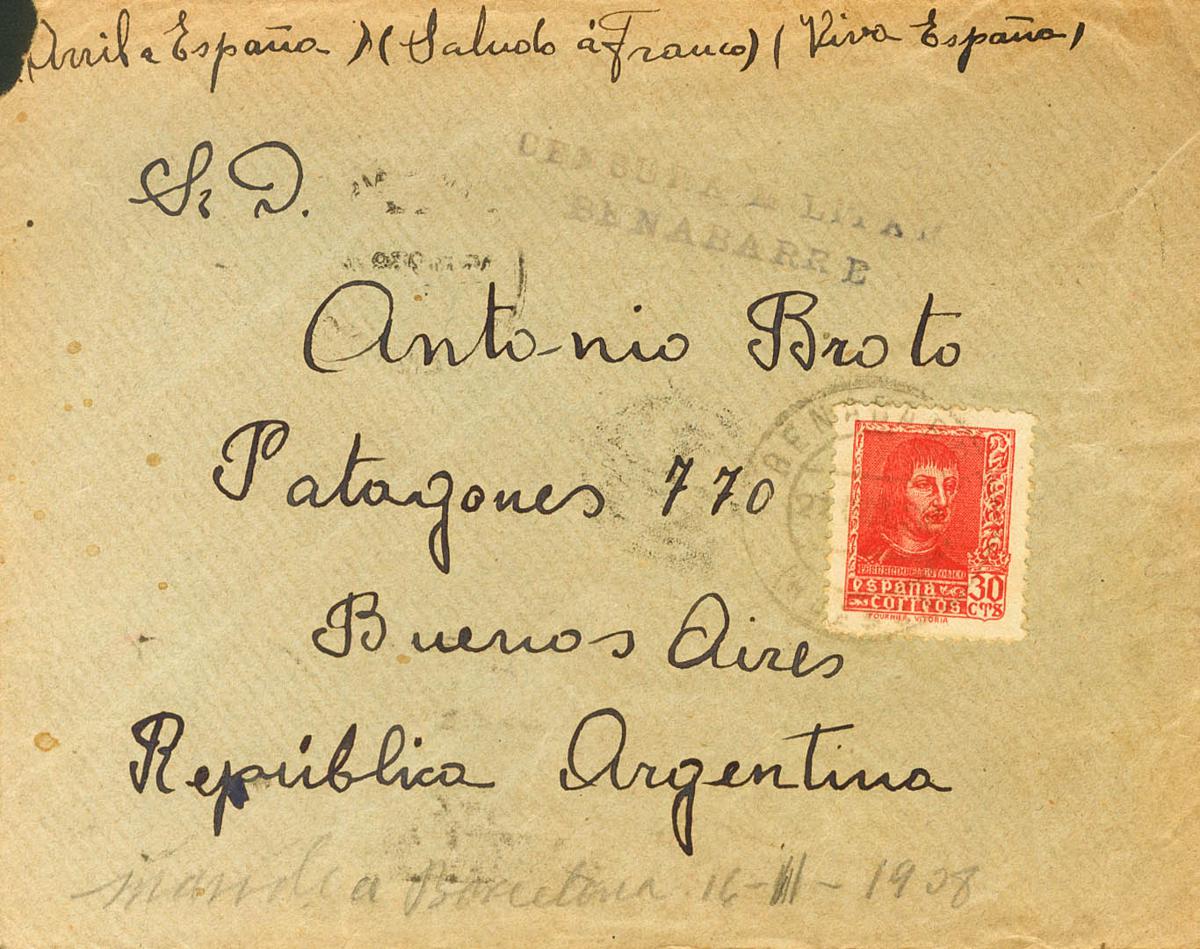 (Arriba España) (Saludo á Franco) (Viva España)
CENSURA MILITAR
BENABARRE
Sr D.
Antonio Broto
BENABARRE
Patagones 770
FERNANDO EL CATOLICO
españa
correos
30
CTS
FOURNIER, VITORIA
Buenos Aires
República Argentina
a Barcelona 16-III-1938